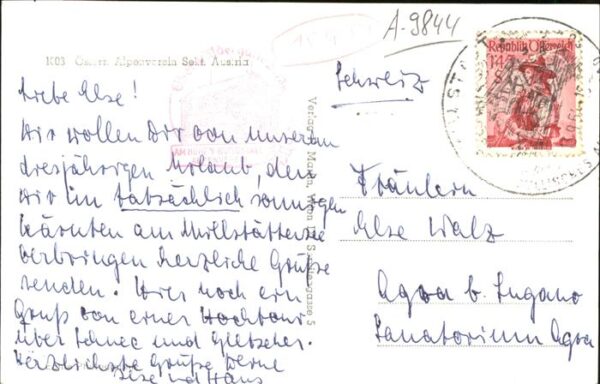 A-9844
K03 Österr. Alpenverein Sekt. Austria
Liebe Else!
Wir wollen Dir von unserem
diesjährigen Urlaub, den
wir im tatsächlich sonnigen
Kärnten am Millstättersee
verbringen herzliche Grüße
senden. Hier noch ein
Gruß von einer Hochtour
über Schnee und Gletscher.
Herzlichste Grüße Deine
Ilse und Hans
Schweiz
Republik Österreich
1.45
S
Fräulein
Else Walz
Agra b. Lugano
Sanatorium Agra